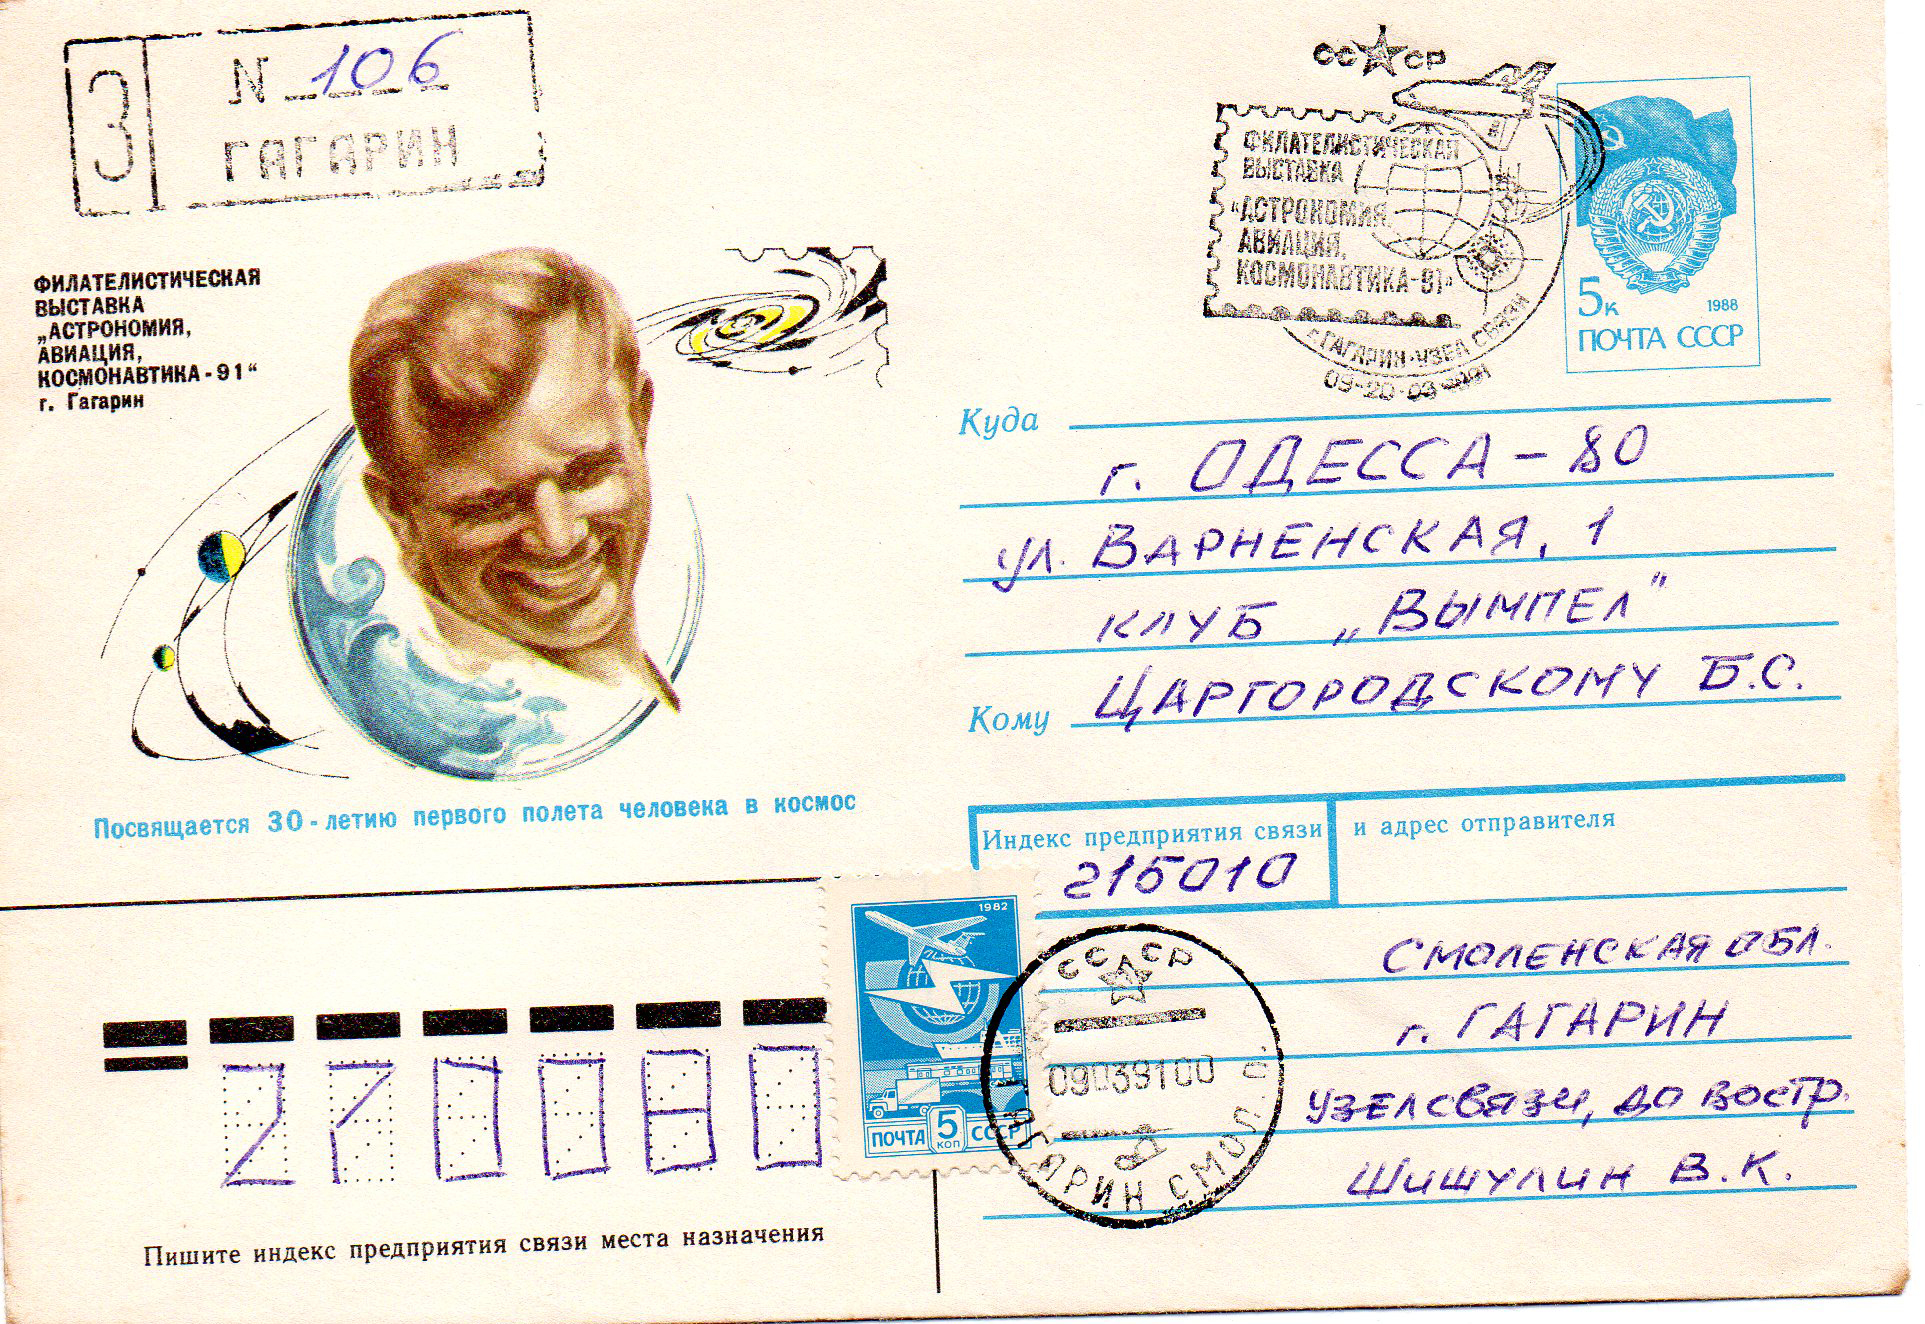 З
N 106
ГАГАРИН
ФИЛАТЕЛИСТИЧЕСКАЯ
ВЫСТАВКА
„АСТРОНОМИЯ,
АВИАЦИЯ,
КОСМОНАВТИКА-91"
г. Гагарин
Посвящается 30-летию первого полета человека в космос
СССР
ФИЛАТЕЛИСТИЧЕСКАЯ
ВЫСТАВКА
«АСТРОНОМИЯ,
АВИАЦИЯ,
КОСМОНАВТИКА-91»
г. ГАГАРИН·УЗЕЛ СВЯЗИ
5к 1988
ПОЧТА СССР
Куда
г. ОДЕССА-80
ул. ВАРНЕНСКАЯ, 1
КЛУБ „ВЫМПЕЛ"
Кому ЦАРГОРОДСКОМУ Б.С.
Индекс предприятия связи и адрес отправителя
215010
СМОЛЕНСКАЯ ОБЛ.
г. ГАГАРИН
УЗЕЛ СВЯЗИ, до востр.
ШИШУЛИН В.К.
1982
ПОЧТА 5 КОП СССР
СССР
09039100
ГАГАРИН СМОЛ. О.
270080
Пишите индекс предприятия связи места назначения